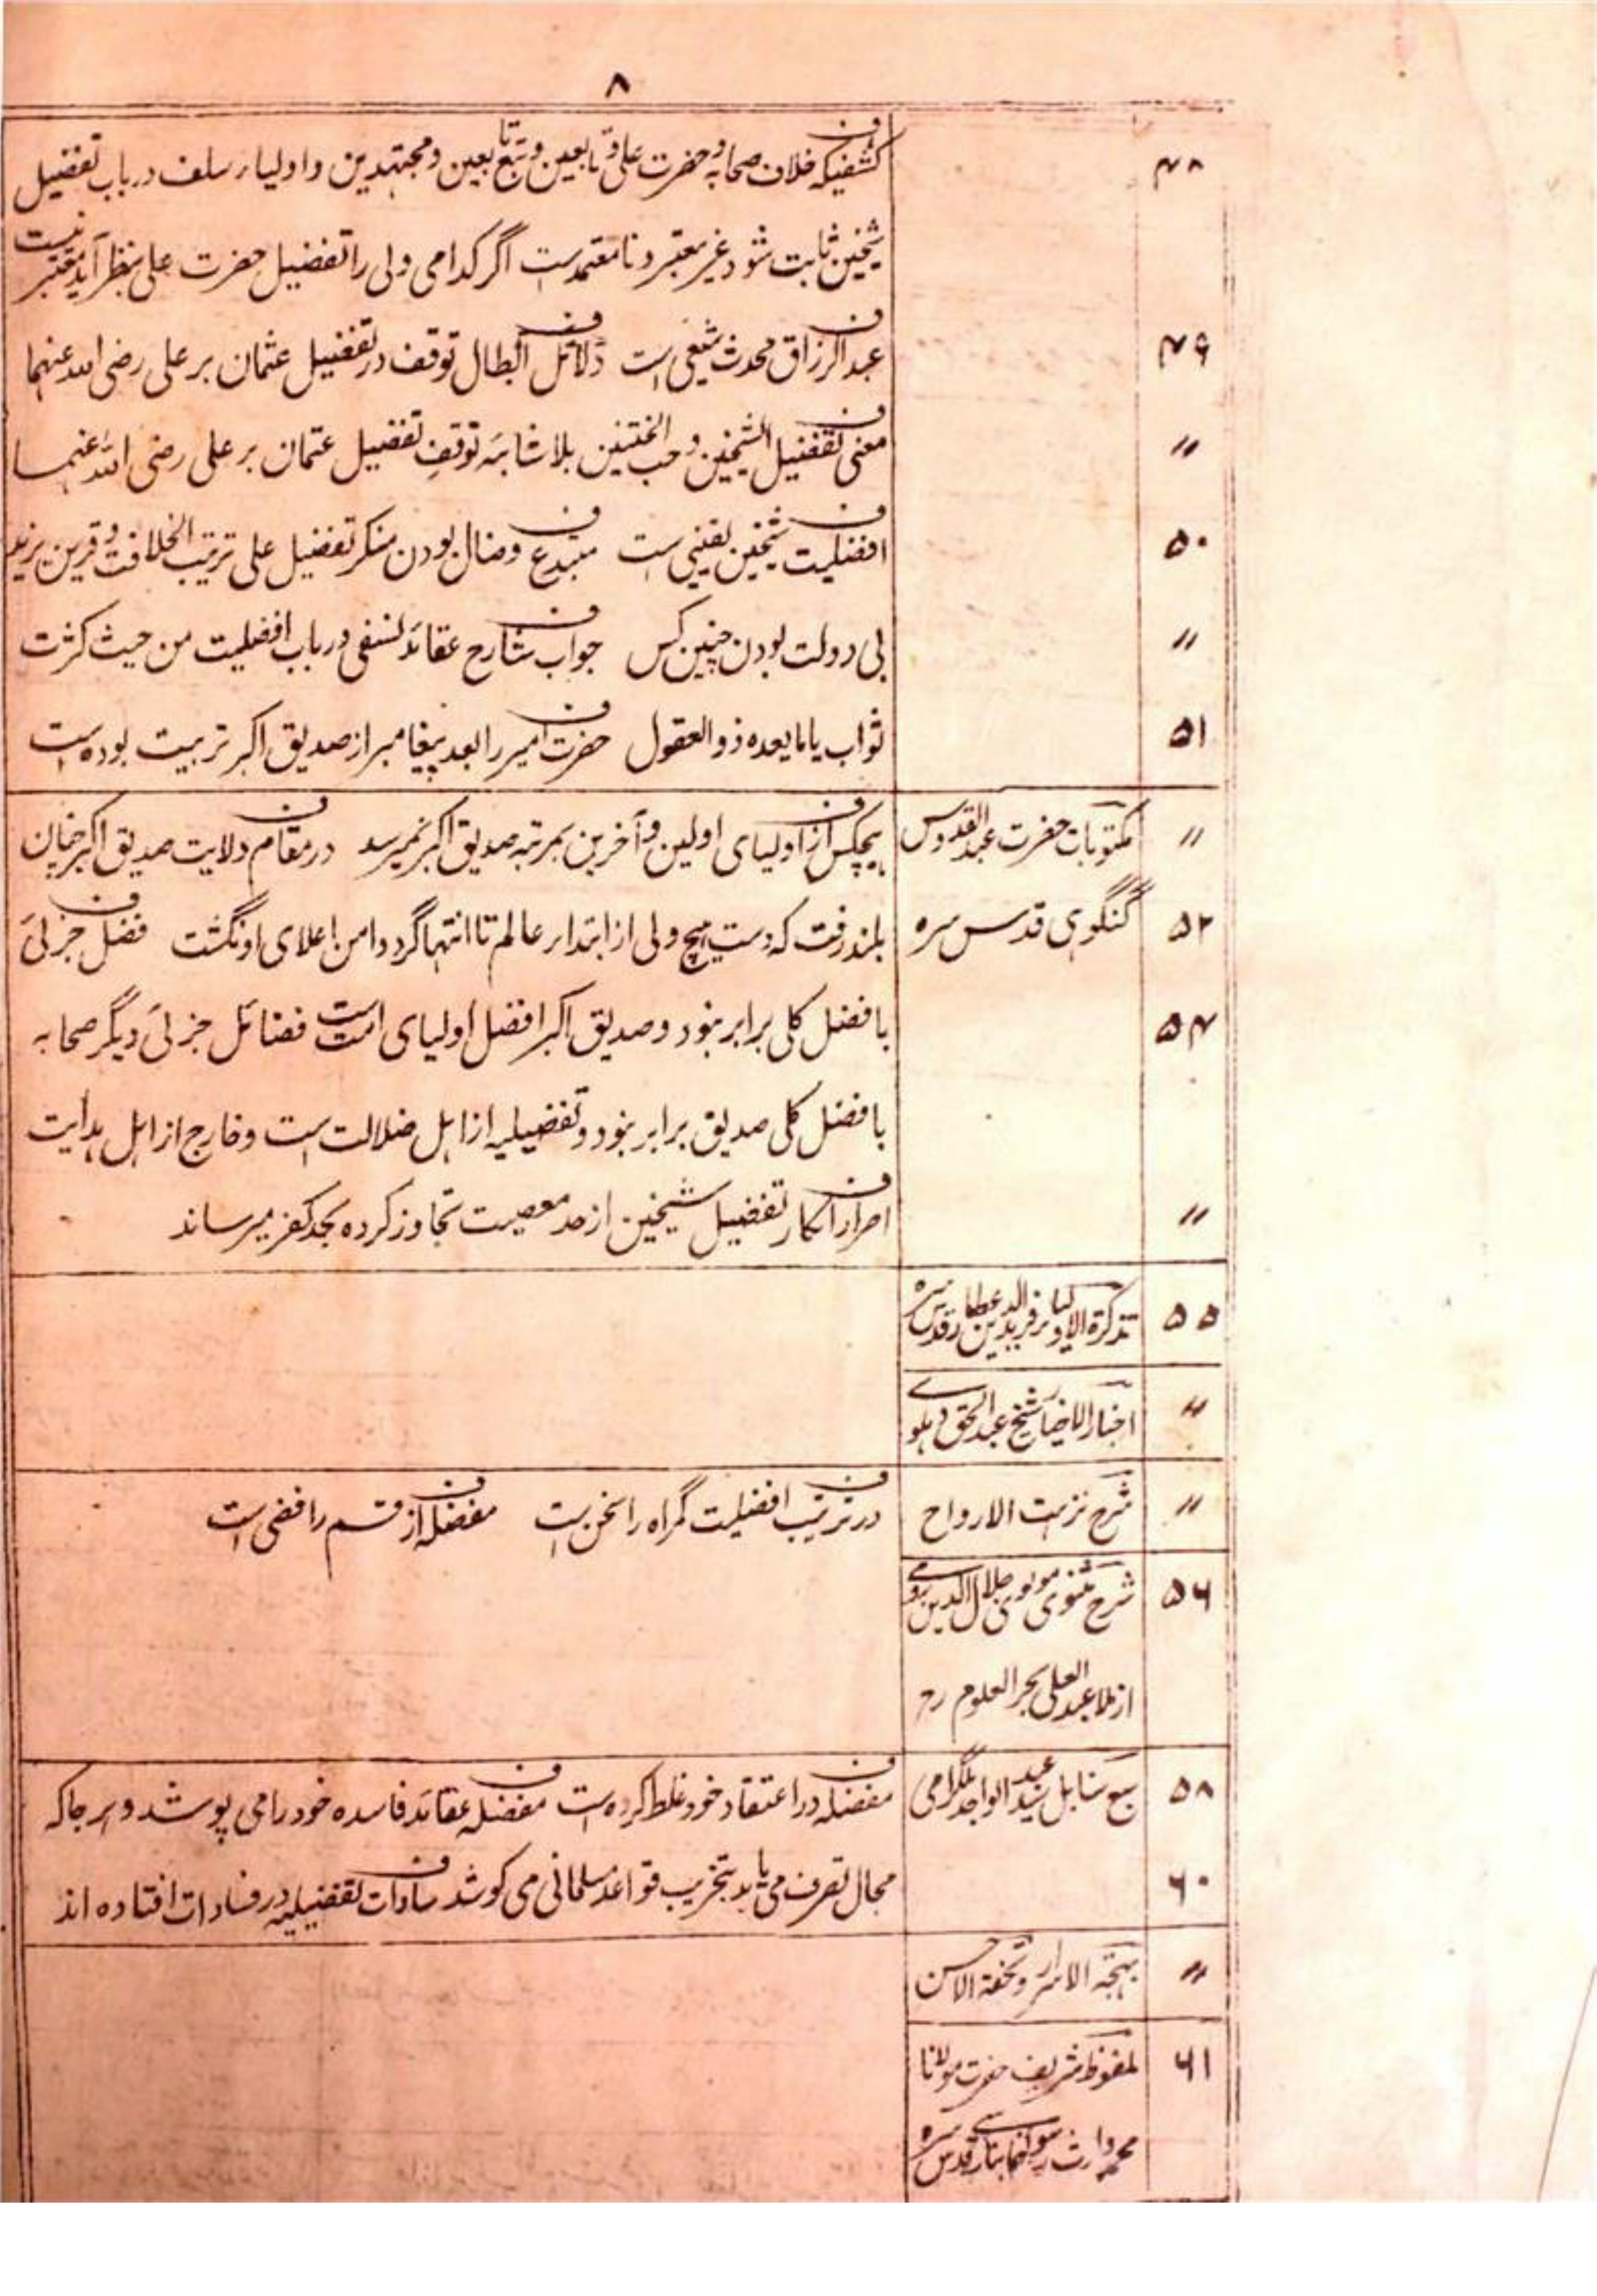 ۸
۴۸ کشفیکہ خلاف صحابہ و حضرت علی و تابعین و تبع تابعین و مجتہدین و اولیاء سلف در باب تفضیل
شیخین ثابت شود غیر معتبر و نامعتمد است اگر کدامی ولی را تفضیل حضرت علی بنظر آید معتبر نیست
۴۹ ف عبدالرزاق محدث شیعی است ف دلائل ابطال توقف در تفضیل عثمان بر علی رضی اللہ عنہما
〃 ف معنی تفضیل الشیخین و حب الختنین بلا شائبہ توقف تفضیل عثمان بر علی رضی اللہ عنہما
۵۰ ف افضلیت شیخین یقینی است ف مبتدع و ضال بودن منکر تفضیل علی ترتیب الخلافت و قرین یزید
〃 بی دولت بودن چنین کس ف جواب شارح عقائد نسفی در باب افضلیت من حیث کثرت
۵۱ ثواب یا ما یعده ذوالعقول ف حضرت امیر را بعد پیغامبر از صدیق اکبر تربیت بوده است
〃 مکتوبات حضرت عبدالقدوس ف ہیچکس از اولیای اولین و آخرین بمرتبہ صدیق اکبر نمیرسد ف در مقام ولایت صدیق اکبر چنان
۵۲ گنگوہی قدس سرہ بلند رفت کہ دست ہیچ ولی از ابتداء عالم تا انتہا گرد دامن اعلای او نگشت ف فضل جزئی
۵۴ با فضل کلی برابر نبود و صدیق اکبر افضل اولیای امت است فضائل جزئی دیگر صحابہ
با فضل کلی صدیق برابر نبود و تفضیلیہ از اہل ضلالت است و خارج از اہل ہدایت
〃 ف اصرار انکار تفضیل شیخین از حد معصیت تجاوز کردہ بحد کفر میرساند
۵۵ تذکرة الاولیاء فرید الدین عطار قدس سرہ
〃 اخبار الاخیار شیخ عبدالحق دہلوے
〃 شرح نزہت الارواح ف در ترتیب افضلیت گمراہ را سخن است ف مفضلہ از قسم رافضی است
۵۶ شرح مثنوی مولوی جلال الدین رومے
از ملا عبدالعلی بحر العلوم رح
۵۸ سبع سنابل سید عبدالواحد بلگرامی ف مفضلہ در اعتقاد خود غلط کردہ است ف مفضلہ عقائد فاسدہ خود را می پوشد و ہر جا کہ
۶۰ مجال تصرف می یابد بتخریب قواعد مسلمانی می کوشد ف سادات تفضیلیہ در فسادات افتادہ اند
〃 بہجة الاسرار و تحفة الاحسن
۶۱ ملفوظ شریف حضرت مولانا
محمد وارث رسولنما بنارسے قدس سرہ